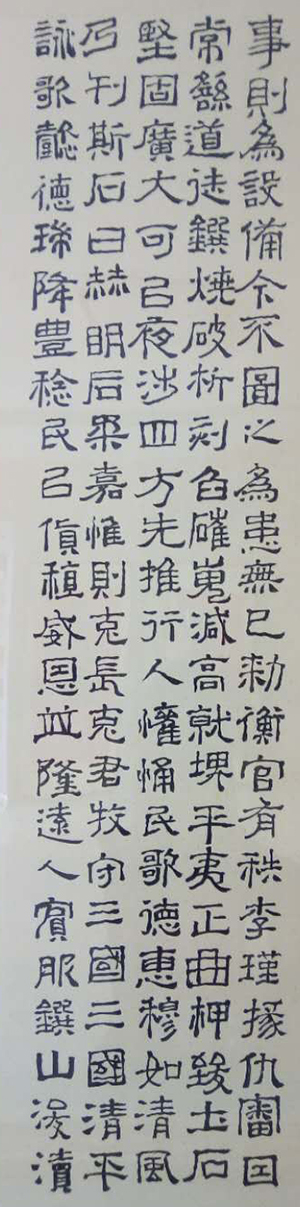 事則為設備今不圖之為患無已勑衡官有秩李瑾掾仇審囙
常繇道徒鐉燒破析刻臽磪嵬減高就埤平夷正曲柙致土石
堅固廣大可㠯夜涉四方先推行人懽悀民歌德惠穆如清風
乃刊斯石曰赫明后柔嘉惟則克長克君牧守三國三國清平
詠歌懿德瑞降豊稔民㠯貨稙威恩並隆遠人賓服鐉山浚瀆